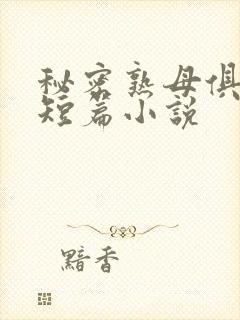 秘密熟母俱
短篇小说
黯香